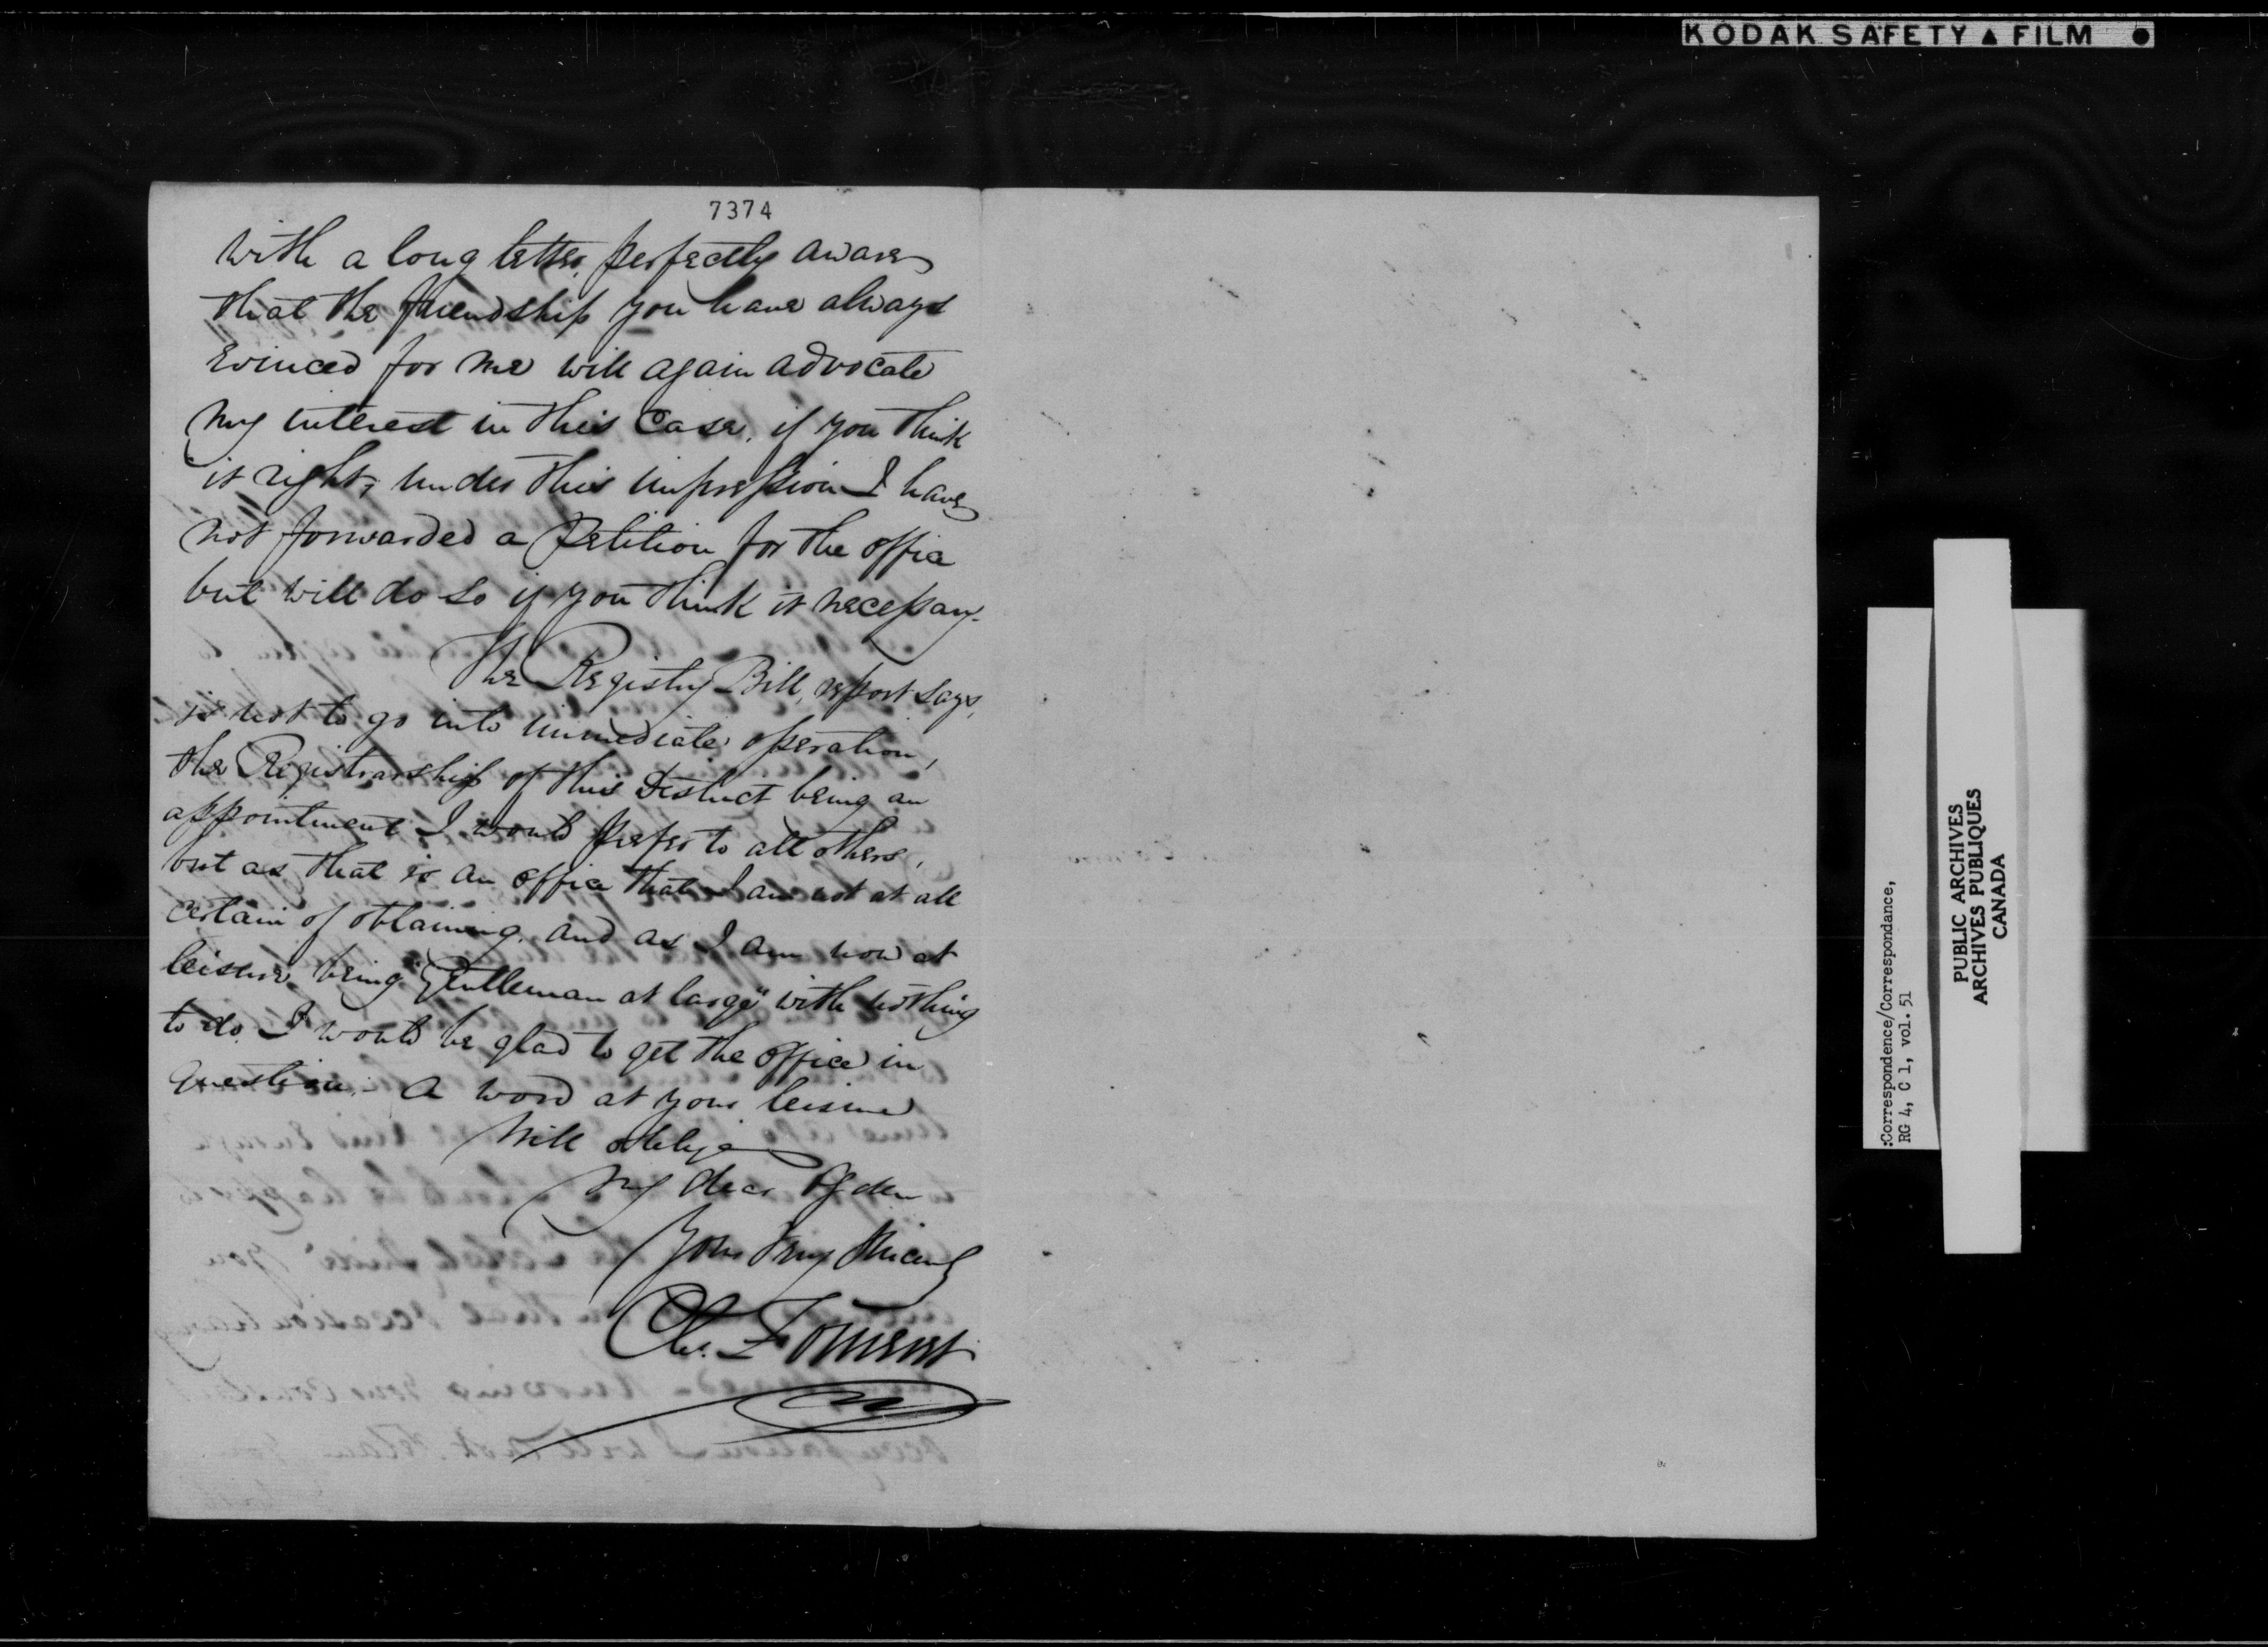 KODAK SAFETY ▲ FILM ●
7374
with a long letter, perfectly aware
that the friendship you have always
evinced for me will again advocate
my interest in this case, if you think
it right; under this impression I have
not forwarded a Petition for the office
but will do so if you think it necessary.
The Registry Bill, report says,
is not to go into immediate operation,
the Registrarship of this District being an
appointment I would prefer to all others,
but as that is an office that I am not at all
certain of obtaining, and as I am now at
leisure being "Gentleman at large" with nothing
to do, I would be glad to get the office in
question. - A word at your leisure
will oblige
My dear Ogden
Yours very
Chs.
:Correspondence/Correspondance,
RG 4, C 1, vol. 51
PUBLIC ARCHIVES
ARCHIVES PUBLIQUES
CANADA